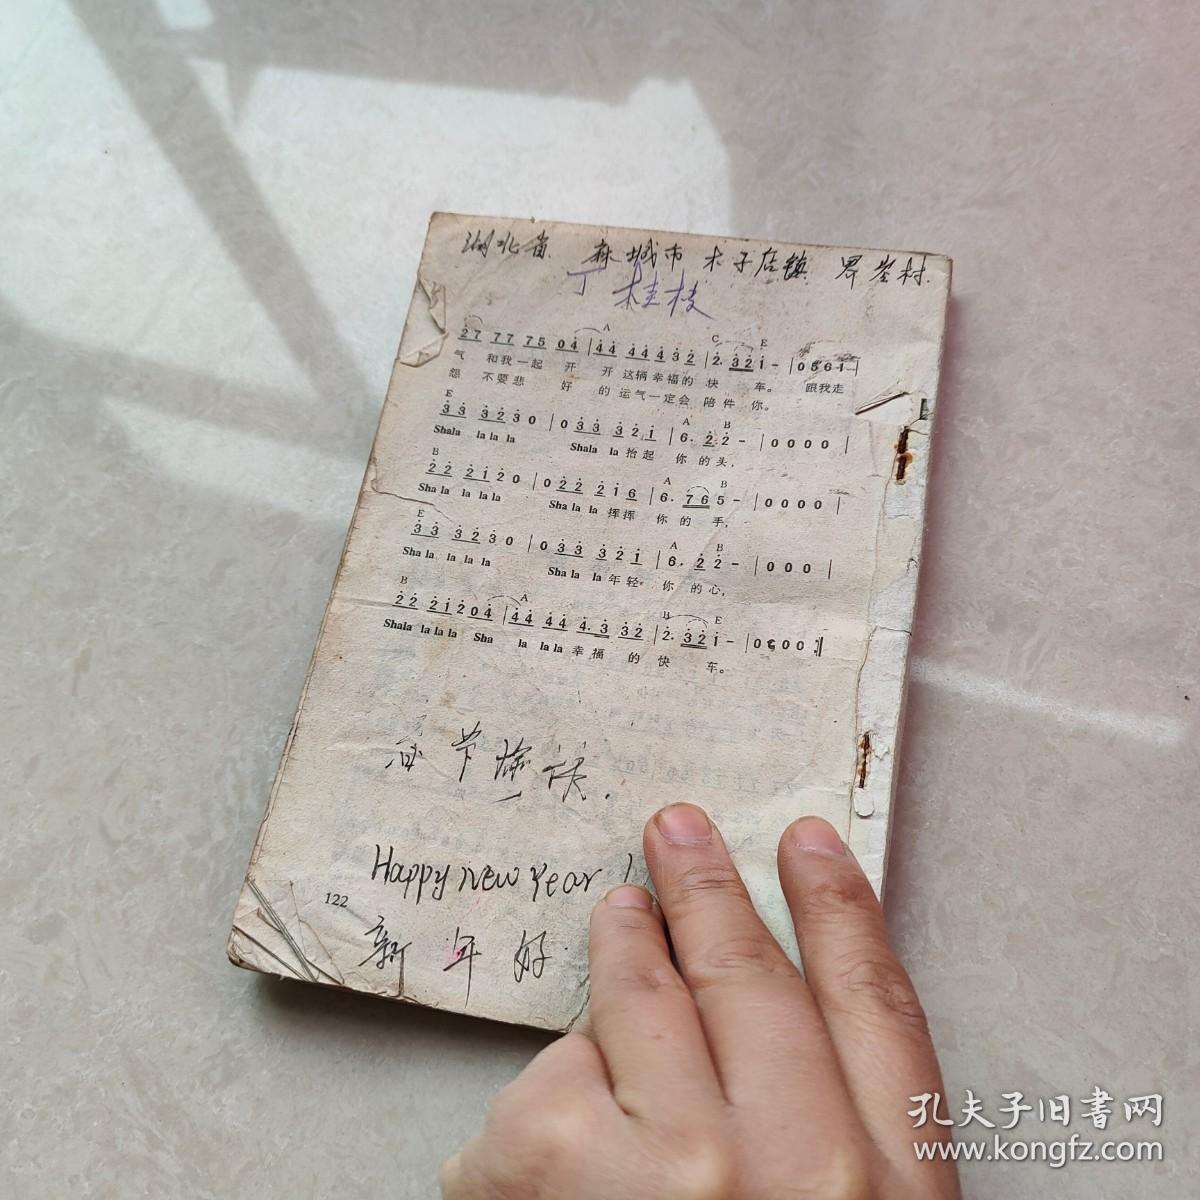 湖北省 麻城市 木子店镇 畀岩村.
丁桂枝
A C E
2 7 7 7 7 5 0 4 | 4 4 4 4 4 3 2 | 2. 3 2 1 – | 0 5 6 1 |
气 和我一起 开 开 这辆幸福的 快 车。 跟我走
怨 不要悲 好 的 运气一定会 陪件 你。
E A B
3 3 3 2 3 0 | 0 3 3 3 2 1 | 6. 2 2 – | 0 0 0 0 |
Shala la la la Shala la 抬起 你 的头,
B A B
2 2 2 1 2 0 | 0 2 2 2 1 6 | 6. 7 6 5 – | 0 0 0 0 |
Sha la la la la Sha la la 挥挥 你 的 手,
E A B
3 3 3 2 3 0 | 0 3 3 3 2 1 | 6. 2 2 – | 0 0 0 |
Sha la la la la Sha la la 年轻 你 的心,
B A B E
2 2 2 1 2 0 4 | 4 4 4 4 4. 3 3 2 | 2. 3 2 1 – | 0 0 0 0 :‖
Shala la la la Sha la la la 幸福 的 快 车。
春节愉快.
Happy New Year
122
新年好
孔夫子旧書网
www.kongfz.com